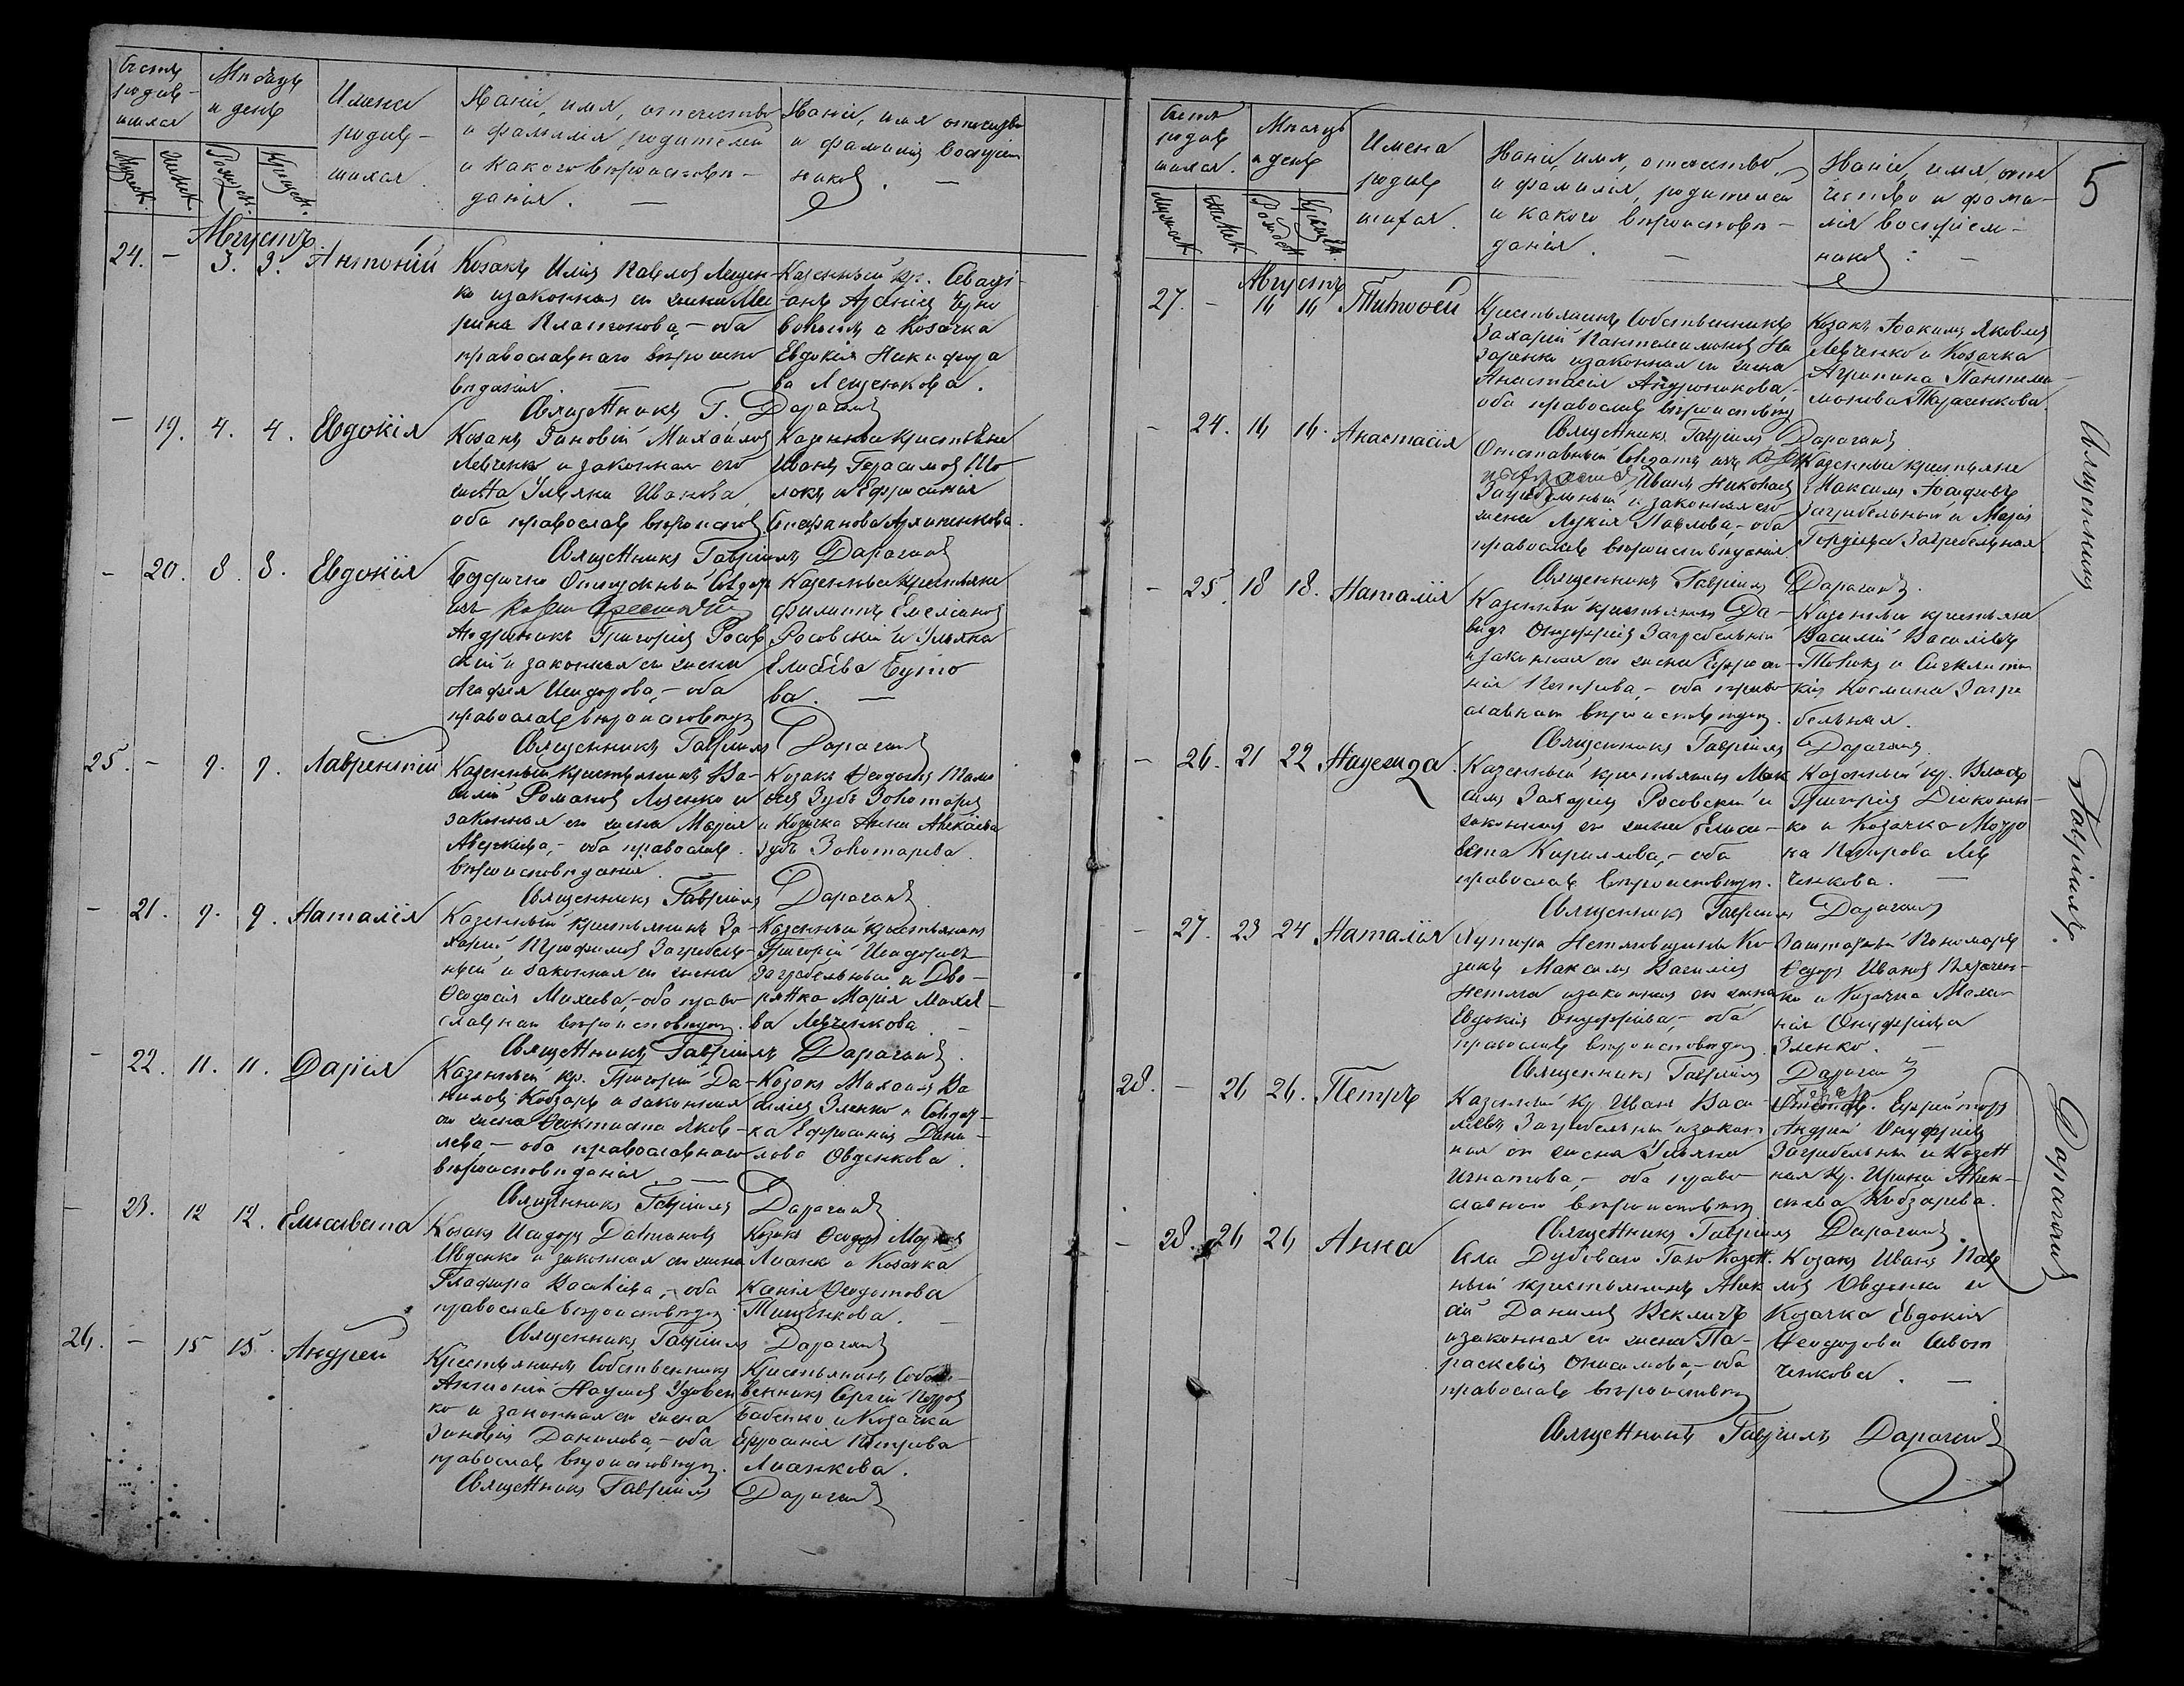 Счетъ родив-
шихся
Мѣсяцъ
и день
Имена
родив-
шихся.
Званіе, имя, отечество
и фамилія родителей
и какого вѣроисповѣ-
данія. —
Званіе, имя отечество
и фамилія воспріем-
никовъ. —
Августъ.
24. — 3. 3. Антоній
Козакъ Илія Павловъ Лещен-
ко и законная его жена
Платонова, — оба
православнаго вѣроиспо
вѣданія. —
Казенный кр.
и Козачка
Евдокія Никифоро
ва Лещенкова.
Священникъ Г. Дараганъ
— 19. 4. 4. Евдокія
Козакъ Зиновій Михайловъ
Левченко и законная его
жена Ульяна Иванова,
оба православ вѣроиспов.
Казенныи крестьяне
Иванъ Герасимовъ
и Ефросинія
Стефанова
Священникъ Гавріилъ Дараганъ
— 20. 8. 8. Евдокія
Безсрочно Отпускный
изъ
Григорій Росов
скій и законная его жена
Агафія Исидорова, — оба
православ вѣроисповѣд
Казенныи крестьяне
Филиппъ Емеліановъ
Росовскій и Ульяна
ва. —
Священникъ Гавріилъ Дараганъ
25. — 9. 9. Лаврентій
Казенный крестьянинъ Ва-
силій Романовъ и
законная его жена Марія
оба православ.
вѣроисповѣданія.
Козакъ
Зубъ
и Козачка Анна
Зубъ
Священникъ Гавріилъ Дараганъ
— 21. 9. 9. Наталія
Казенный крестьянинъ За-
харій Трофимовъ Загребель-
ный и законная его жена
Ѳеодосія Михеева, — оба право-
славнаго вѣроисповѣд.
Казенный крестьянинъ
Григорій Исидоровъ
Загребельный и Дво-
рянка Марія
ва Левченкова. —
Священникъ Гавріилъ Дараганъ.
— 22. 11. 11. Дарія
Казенный кр. Григорій Да-
ниловъ Кобзарь и законная
его жена Ѳеоктиста Яков-
лева, — оба православнаго
вѣроисповѣданія —
Козакъ Михаилъ Ва-
силіевъ Зленко и Солдат-
ка Ефросинія Дани-
лова Овденкова.
Священникъ Гавріилъ Дараганъ
— 23. 12 12. Елисавета
Козакъ Исидоръ
Овденко и законная его жена
Глафира Васильева, — оба
православ вѣроисповѣд
Козакъ Ѳеодоръ
и Козачка
Ксенія
Тищенкова. —
Священникъ Гавріилъ Дараганъ
26. — 15 15. Андрей
Крестьянинъ Собственникъ
Антоній Наумовъ Удовен
ко и законная его жена
Зиновія Данилова, — оба
православ вѣроисповѣд.
Крестьянинъ Собст-
венникъ Сергій Петровъ
Бабенко и Козачка
Ефросинія Петрова
Лисенкова.
Священникъ Гавріилъ Дараганъ
5
Счетъ
родив
шихся.
Мѣсяцъ
и день
Имена
родив
шихся.
Званіе, имя, отечество,
и фамилія, родителей
и какого вѣроисповѣ-
данія. —
Званіе, имя, оте
чество и фами-
лія воспріем-
никовъ. —
Августъ
27. — 16 16 Тимофей
Крестьянинъ Собственникъ
Захарій Пантелеимоновъ На
заренко и законная его жена
Анастасія Андроникова,
оба православ вѣроисповѣд
Козакъ Іоакимъ Яковлевъ
Левченко и Козачка
Агрипина Пантелеи
монова Тарасенкова.
Священникъ Гавріилъ Дараганъ
— 24. 16 16. Анастасія
Отставный Солдатъ изъ
Иванъ Николаевъ
Загребельный и законная его
жена Лукія Павлова, — оба
православ вѣроисповѣданія
Казенныи крестьяне
Максимъ Іосифовъ
Загребельный и Марія
Гордіева Загребельная
Священникъ Гавріилъ Дараганъ.
— 25. 18 18. Наталія
Казенный крестьянинъ Да-
видъ Онуфріевъ Загребельный
и законная его жена Ефроси-
нія Петрова, — оба право
славнаго вѣроисповѣд.
Казенныи крестьяне
Василій Василіевъ
и
кія Космина Загре
бельная.
Священникъ Гавріилъ Дараганъ
— 26. 21 22 Надежда.
Казенный крестьянинъ Мак
симъ Захаріевъ Росовскій и
законная его жена Елиса-
вета Кириллова, — оба
православ вѣроисповѣд.
Казенный кр.
Григорій Діяконен-
ко и Козачка Мотро
на Петрова Лев
ченкова. —
Священникъ Гавріилъ Дараганъ
— 27. 23 24 Наталія
Ко-
закъ Максимъ Василіевъ
и законная его жена
Евдокія Онуфріева, — оба
православ вѣроисповѣд.
Заштатный Пономарь
Ѳедоръ Ивановъ
ко и Козачка Мела-
нія Онуфріева
Зленко. —
Священникъ Гавріилъ Дараганъ
28. — 26 26. Петръ
Казенный кр Иванъ Васи-
ліевъ Загребельный и закон
ная его жена Ульяна
Игнатова, — оба право
славнаго вѣроисповѣд
Ефрейторъ
Андрей Онуфріевъ
Загребельный и Казен
ная кр. Ирина Алек-
сѣева Кобзарева.
Священникъ Гавріилъ Дараганъ.
— 28. 26 26 Анна
Села Дубоваго Гаю Казен-
ный крестьянинъ Алек
сій Даниловъ Векличъ
и законная его жена Па-
раскевія Онисимова, — оба
православ вѣроисповѣд
Козакъ Иванъ Пав
ловъ Овденко и
Козачка Евдокія
Ѳеодорова
ченкова. —
Священникъ Гавріилъ Дараганъ
Священникъ Гавріилъ. Дараганъ